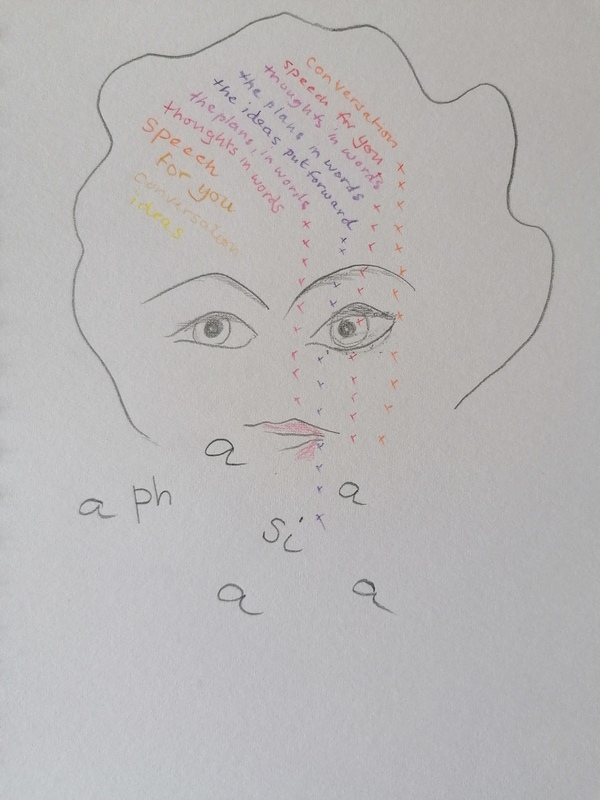 conversation
speech for you
thoughts in words
the plans in words
the ideas put forward
the plans, in words
thoughts in words
speech
for you
conversation
ideas
a
a ph
a
si
a
a